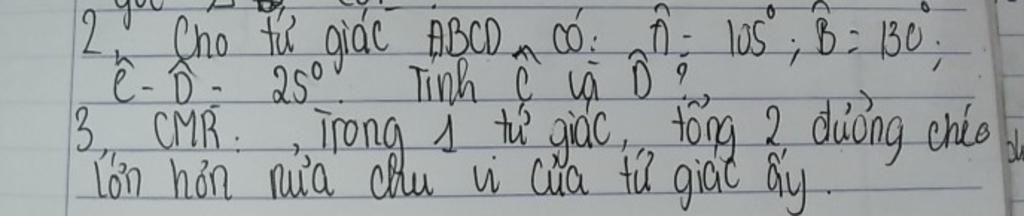 2, Cho tứ giác ABCD có: Â = 105°; B̂ = 130°;
Ĉ - D̂ = 25°. Tính Ĉ và D̂?
3, CMR: , Trong 1 tứ giác, tổng 2 đường chéo
lớn hơn nửa chu vi của tứ giác ấy.